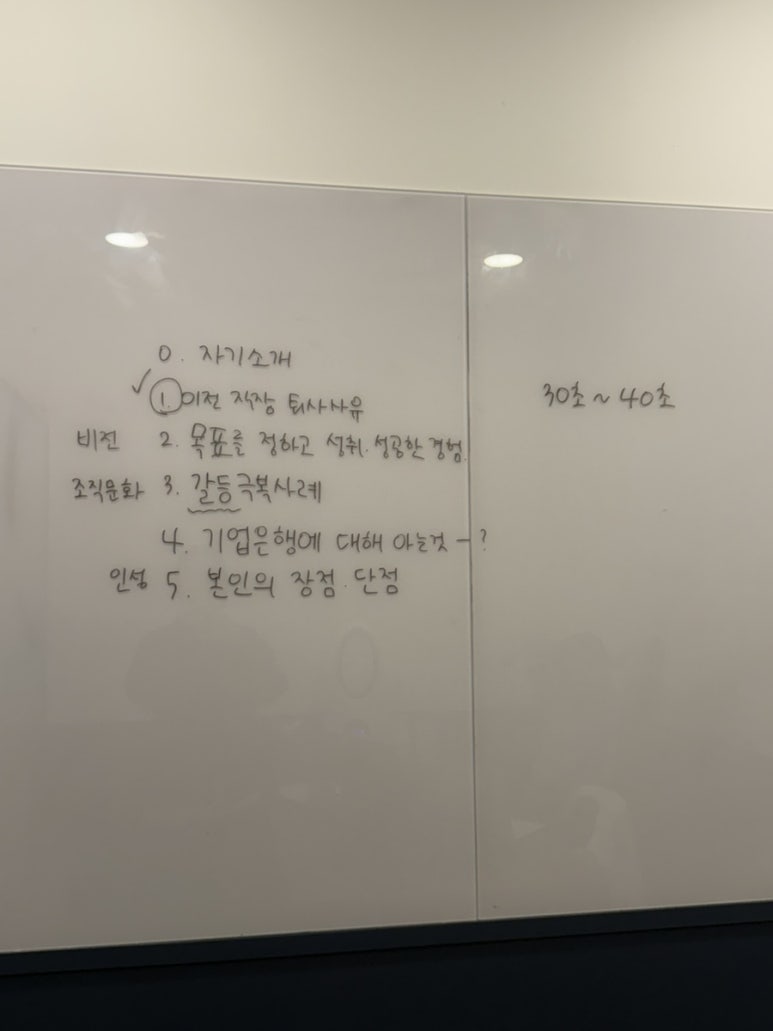 0. 자기소개
✓ 1. 이전 직장 퇴사사유
30초 ~ 40초
비전 2. 목표를 정하고 성취. 성공한 경험.
조직문화 3. 갈등극복사례
4. 기업은행에 대해 아는것 - ?
인성 5. 본인의 장점. 단점